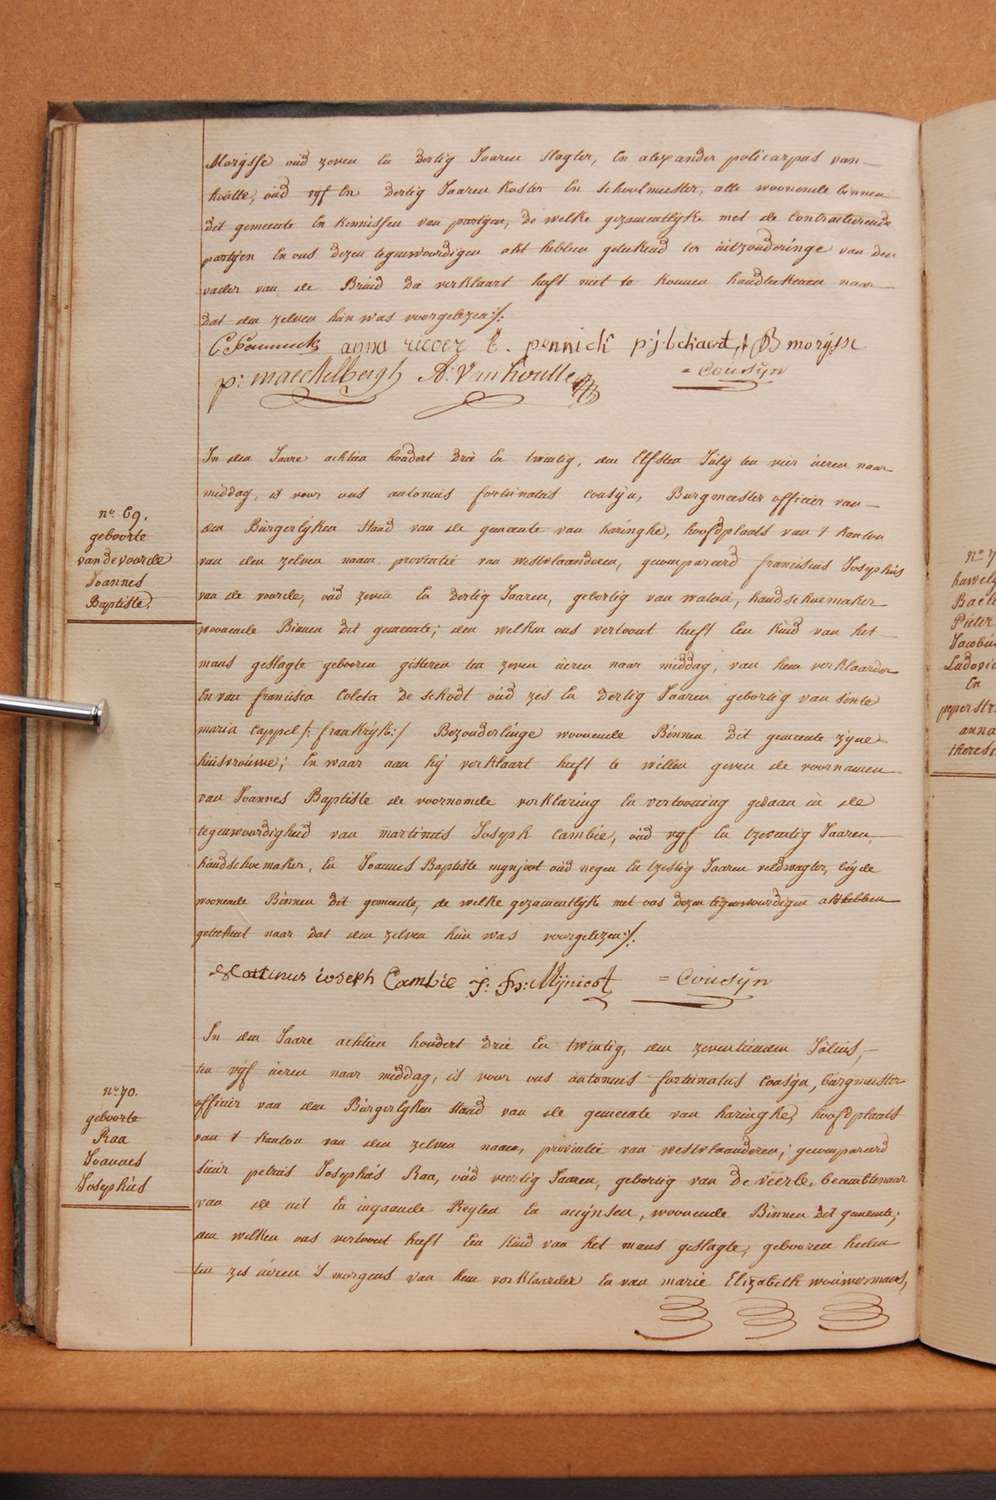 Morÿsse oúd zeven En dertig Jaaren slagter, En alexander policarpus van-
houtte, oúd vÿf En dertig Jaaren koster En schoolmeester, alle woonende binnen
dit gemeente En kennissen van partÿen, de welke gezamentlÿk met de Contracteerende
partÿen En ons dezen tegenwoordigen akt hebben geteekend ter úitzonderinge van den
vader van de Brúid die verklaart heeft niet te konnen handteekenen naar
dat den zelven hún was voorgelezen:/:
anna E. pennick p:j: bckaert J B morÿsse
p: maeckelbergh A: Vanhoutte = Coúsÿn
In den Jaare achtien hondert drie En twintig, den Elfsten Júlÿ ten vier úeren naar
middag, is voor ons antonius fortunatus cousÿn, Burgmeester officier van
den Búrgerlÿken stand van de gemeente van haringhe, hoofdplaats van 't kanton
van den zelven naam, provintie van westvlaanderen, gecompareerd franciscus Josephús
van de voorde, oúd zeven En dertig Jaaren, geboortig van watoú, handschoemaker
woonende Binnen dit gemeente; den welken ons vertoont heeft Een kind van het
mans geslagte gebooren gisteren ten zeven úeren naar middag, van hem verklaarder
En van francisca Coleta de schodt oúd zes En dertig Jaaren gebortig van sinte
maria Cappel /: frankrÿk:/ Bezonderlinge woonende Binnen dit gemeente zÿne
húisvrouwe; En waar aan hÿ verklaart heeft te willen geven de voornamen
van Joannes Baptiste de voornomde verklaring En vertooning gedaan in de
tegenwoordigheid van martinus Joseph Cambie, oúd vÿf En tzeventig Jaaren
handschoemaker, En Joannes Baptiste mÿnjoot oúd negen En tzestig Jaaren veldwagter, beÿde
woonende Binnen dit gemeente, de welke gezamentlÿk met ons dezen tegenwoordigen akt hebben
geteekent naar dat den zelven hún was voorgelezen:/:
Martinus ioseph Cambie j: = Coúsÿn
In den Jaare achtien hondert drie En twintig, den zeventienden Július,
ten vÿf úeren naar middag, is voor ons antonius fortúnatus cousÿn, búrgmeester
officier van den Búrgerlÿken stand van de gemeente van haringhe, hoofdplaats
van 't kanton van den zelven naam, provintie van westvlaanderen; gecompareerd
sieúr petrús Josephús Raa, oúd veertig Jaaren, gebortig van De veerle, beambtenaar
van de uit En ingaande Regten En accÿnsen, woonende Binnen dit gemeente;
den welken ons vertoont heeft Een kind van het mans geslagte, gebooren heden
ten zes úeren 's morgens van hem verklaarder En van marie Elizabeth woúwermans,
no 69.
geboorte
van de voorde
Joannes
Baptiste.
no 70.
geboorte
Raa
Joannes
Josephús
no 7
Pieter
Ludovic
En
anna
theres